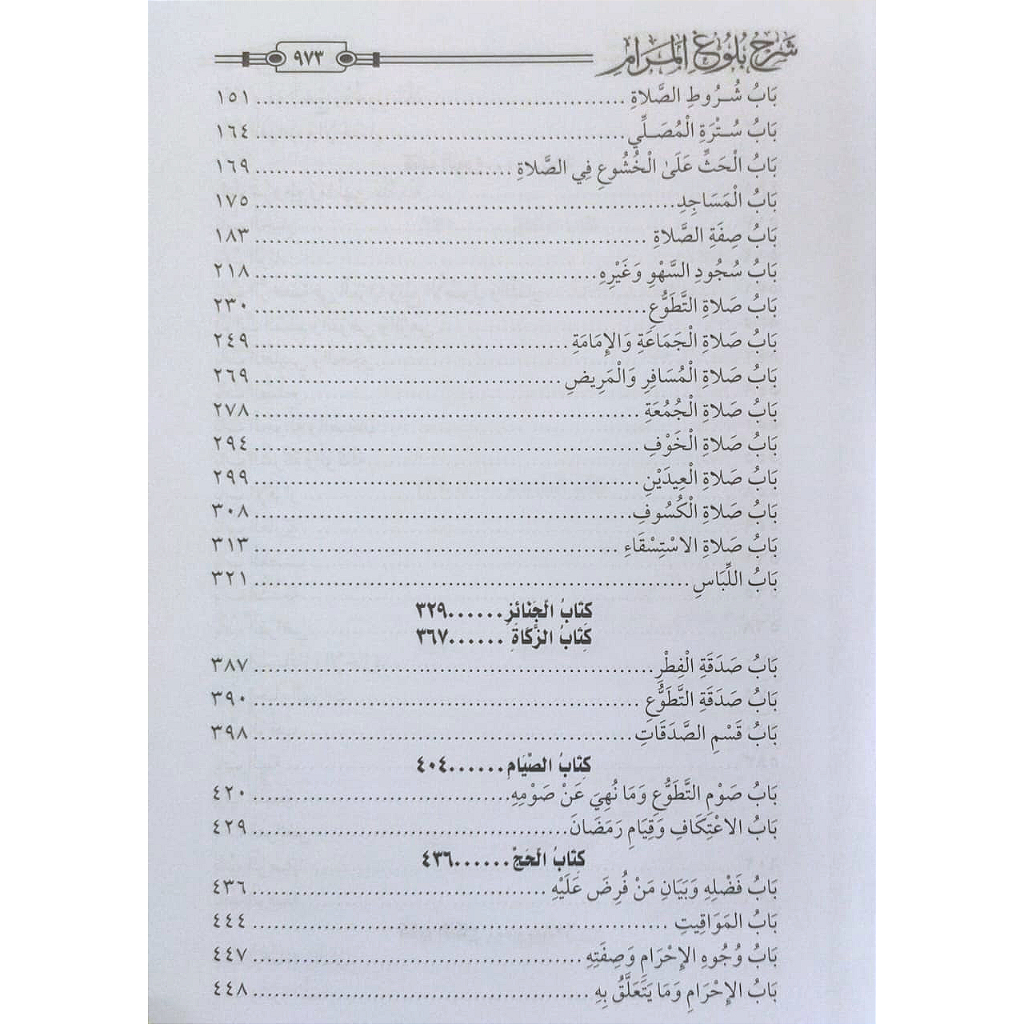 شرح بلوغ المرام ٩٧٣
بَابُ شُرُوطِ الصَّلَاةِ ........ ١٥١
بَابُ سُتْرَةِ الْمُصَلِّي ........ ١٦٤
بَابُ الْحَثِّ عَلَىٰ الْخُشُوعِ فِي الصَّلَاةِ ........ ١٦٩
بَابُ الْمَسَاجِدِ ........ ١٧٥
بَابُ صِفَةِ الصَّلَاةِ ........ ١٨٣
بَابُ سُجُودِ السَّهْوِ وَغَيْرِهِ ........ ٢١٨
بَابُ صَلَاةِ التَّطَوُّعِ ........ ٢٣٠
بَابُ صَلَاةِ الْجَمَاعَةِ وَالإِمَامَةِ ........ ٢٤٩
بَابُ صَلَاةِ الْمُسَافِرِ وَالْمَرِيضِ ........ ٢٦٩
بَابُ صَلَاةِ الْجُمُعَةِ ........ ٢٧٨
بَابُ صَلَاةِ الْخَوْفِ ........ ٢٩٤
بَابُ صَلَاةِ الْعِيدَيْنِ ........ ٢٩٩
بَابُ صَلَاةِ الْكُسُوفِ ........ ٣٠٨
بَابُ صَلَاةِ الاسْتِسْقَاءِ ........ ٣١٣
بَابُ اللِّبَاسِ ........ ٣٢١
كِتَابُ الجَنائِزِ ...... ٣٢٩
كِتَابُ الزَّكَاةِ ...... ٣٦٧
بَابُ صَدَقَةِ الْفِطْرِ ........ ٣٨٧
بَابُ صَدَقَةِ التَّطَوُّعِ ........ ٣٩٠
بَابُ قَسْمِ الصَّدَقَاتِ ........ ٣٩٨
كِتَابُ الصِّيَامِ ...... ٤٠٤
بَابُ صَوْمِ التَّطَوُّعِ وَمَا نُهِيَ عَنْ صَوْمِهِ ........ ٤٢٠
بَابُ الاعْتِكَافِ وَقِيَامِ رَمَضَانَ ........ ٤٢٩
كِتَابُ الحَجِّ ...... ٤٣٦
بَابُ فَضْلِهِ وَبَيَانِ مَنْ فُرِضَ عَلَيْهِ ........ ٤٣٦
بَابُ المَوَاقِيتِ ........ ٤٤٤
بَابُ وُجُوهِ الإِحْرَامِ وَصِفَتِهِ ........ ٤٤٧
بَابُ الإِحْرَامِ وَمَا يَتَعَلَّقُ بِهِ ........ ٤٤٨